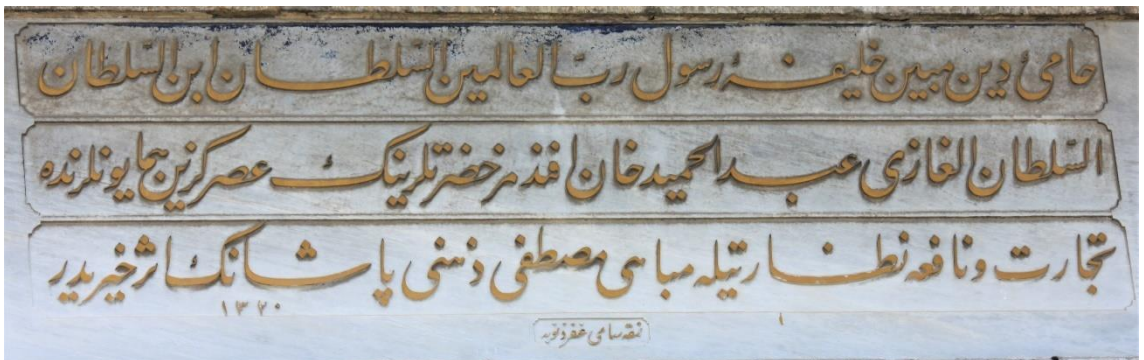 حامئ دين مبين خليفۀ رسول ربّ العالمين السّلطان ابن السّلطان
السّلطان الغازى عبد الحميد خان افندمز حضرتلرينڭ عصر كزين همايونلرنده
تجارت ونافعه نظارتيله مباهى مصطفى ذهنى پاشانڭ اثر خيريدر
١٣٢٠
نمقه سامى غفر ذنوبه